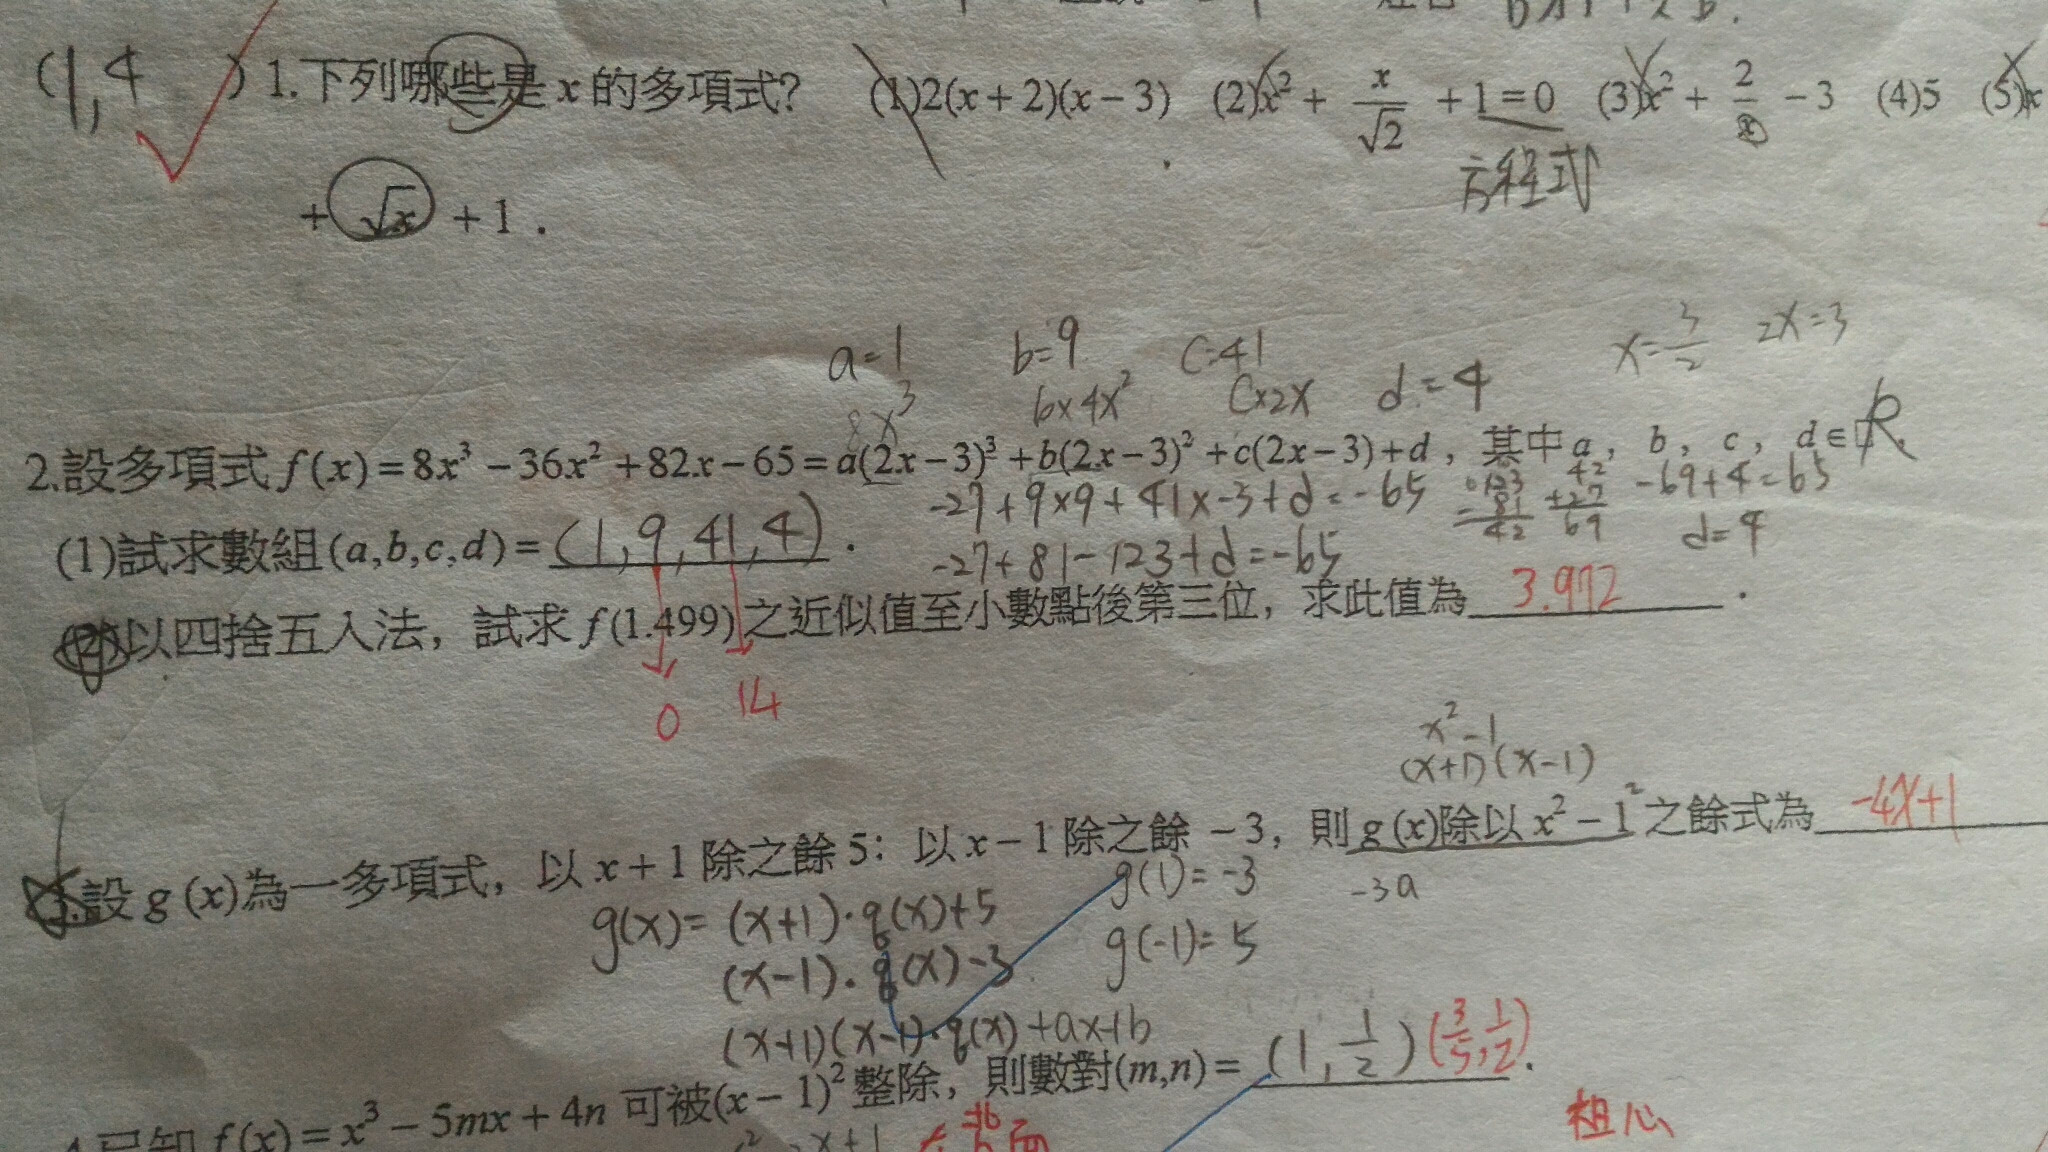 (1,4 ) 1.下列哪些是 x 的多項式? (1)2(x+2)(x-3) (2)x²+x/√2+1=0 (3)x²+2/x-3 (4)5 (5)x
方程式
+√x+1.
a=1 b=9 c=41 d=4 x=3/2 2x=3
8x³ b×4x² c×2x
2.設多項式 f(x)=8x³-36x²+82x-65=a(2x-3)³+b(2x-3)²+c(2x-3)+d，其中a，b，c，d∈R.
-27+9×9+41×-3+d=-65 123 -81 42 42 +27 69 -69+4=65
(1)試求數組(a,b,c,d)=(1,9,41,4).
-27+81-123+d=-65 d=4
(2)以四捨五入法，試求 f(1.499)之近似值至小數點後第三位，求此值為 3.972.
0 14
x²-1
(x+1)(x-1)
3.設 g(x)為一多項式，以 x+1 除之餘 5：以 x-1 除之餘 -3，則 g(x)除以 x²-1 之餘式為 -4x+1
g(x)=(x+1)·q(x)+5 g(1)=-3 -3a
(x-1)·q(x)-3 g(-1)=5
(x+1)(x-1)·q(x)+ax+b
4.已知 f(x)=x³-5mx+4n 可被(x-1)²整除，則數對(m,n)=(1,1/2)(3/5,1/2).
x+1 背面 粗心